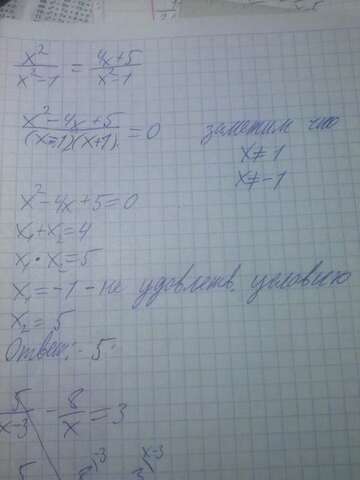 x²/(x²-1) = (4x+5)/(x²-1)
(x²-4x+5)/((x-1)(x+1)) = 0 заметим что
x≠1
x≠-1
x²-4x+5=0
x₁+x₂=4
x₁·x₂=5
x₁=-1 - не удовлетв. условию
x₂=5
Ответ: 5.
5/(x-3) - 8/x = 3